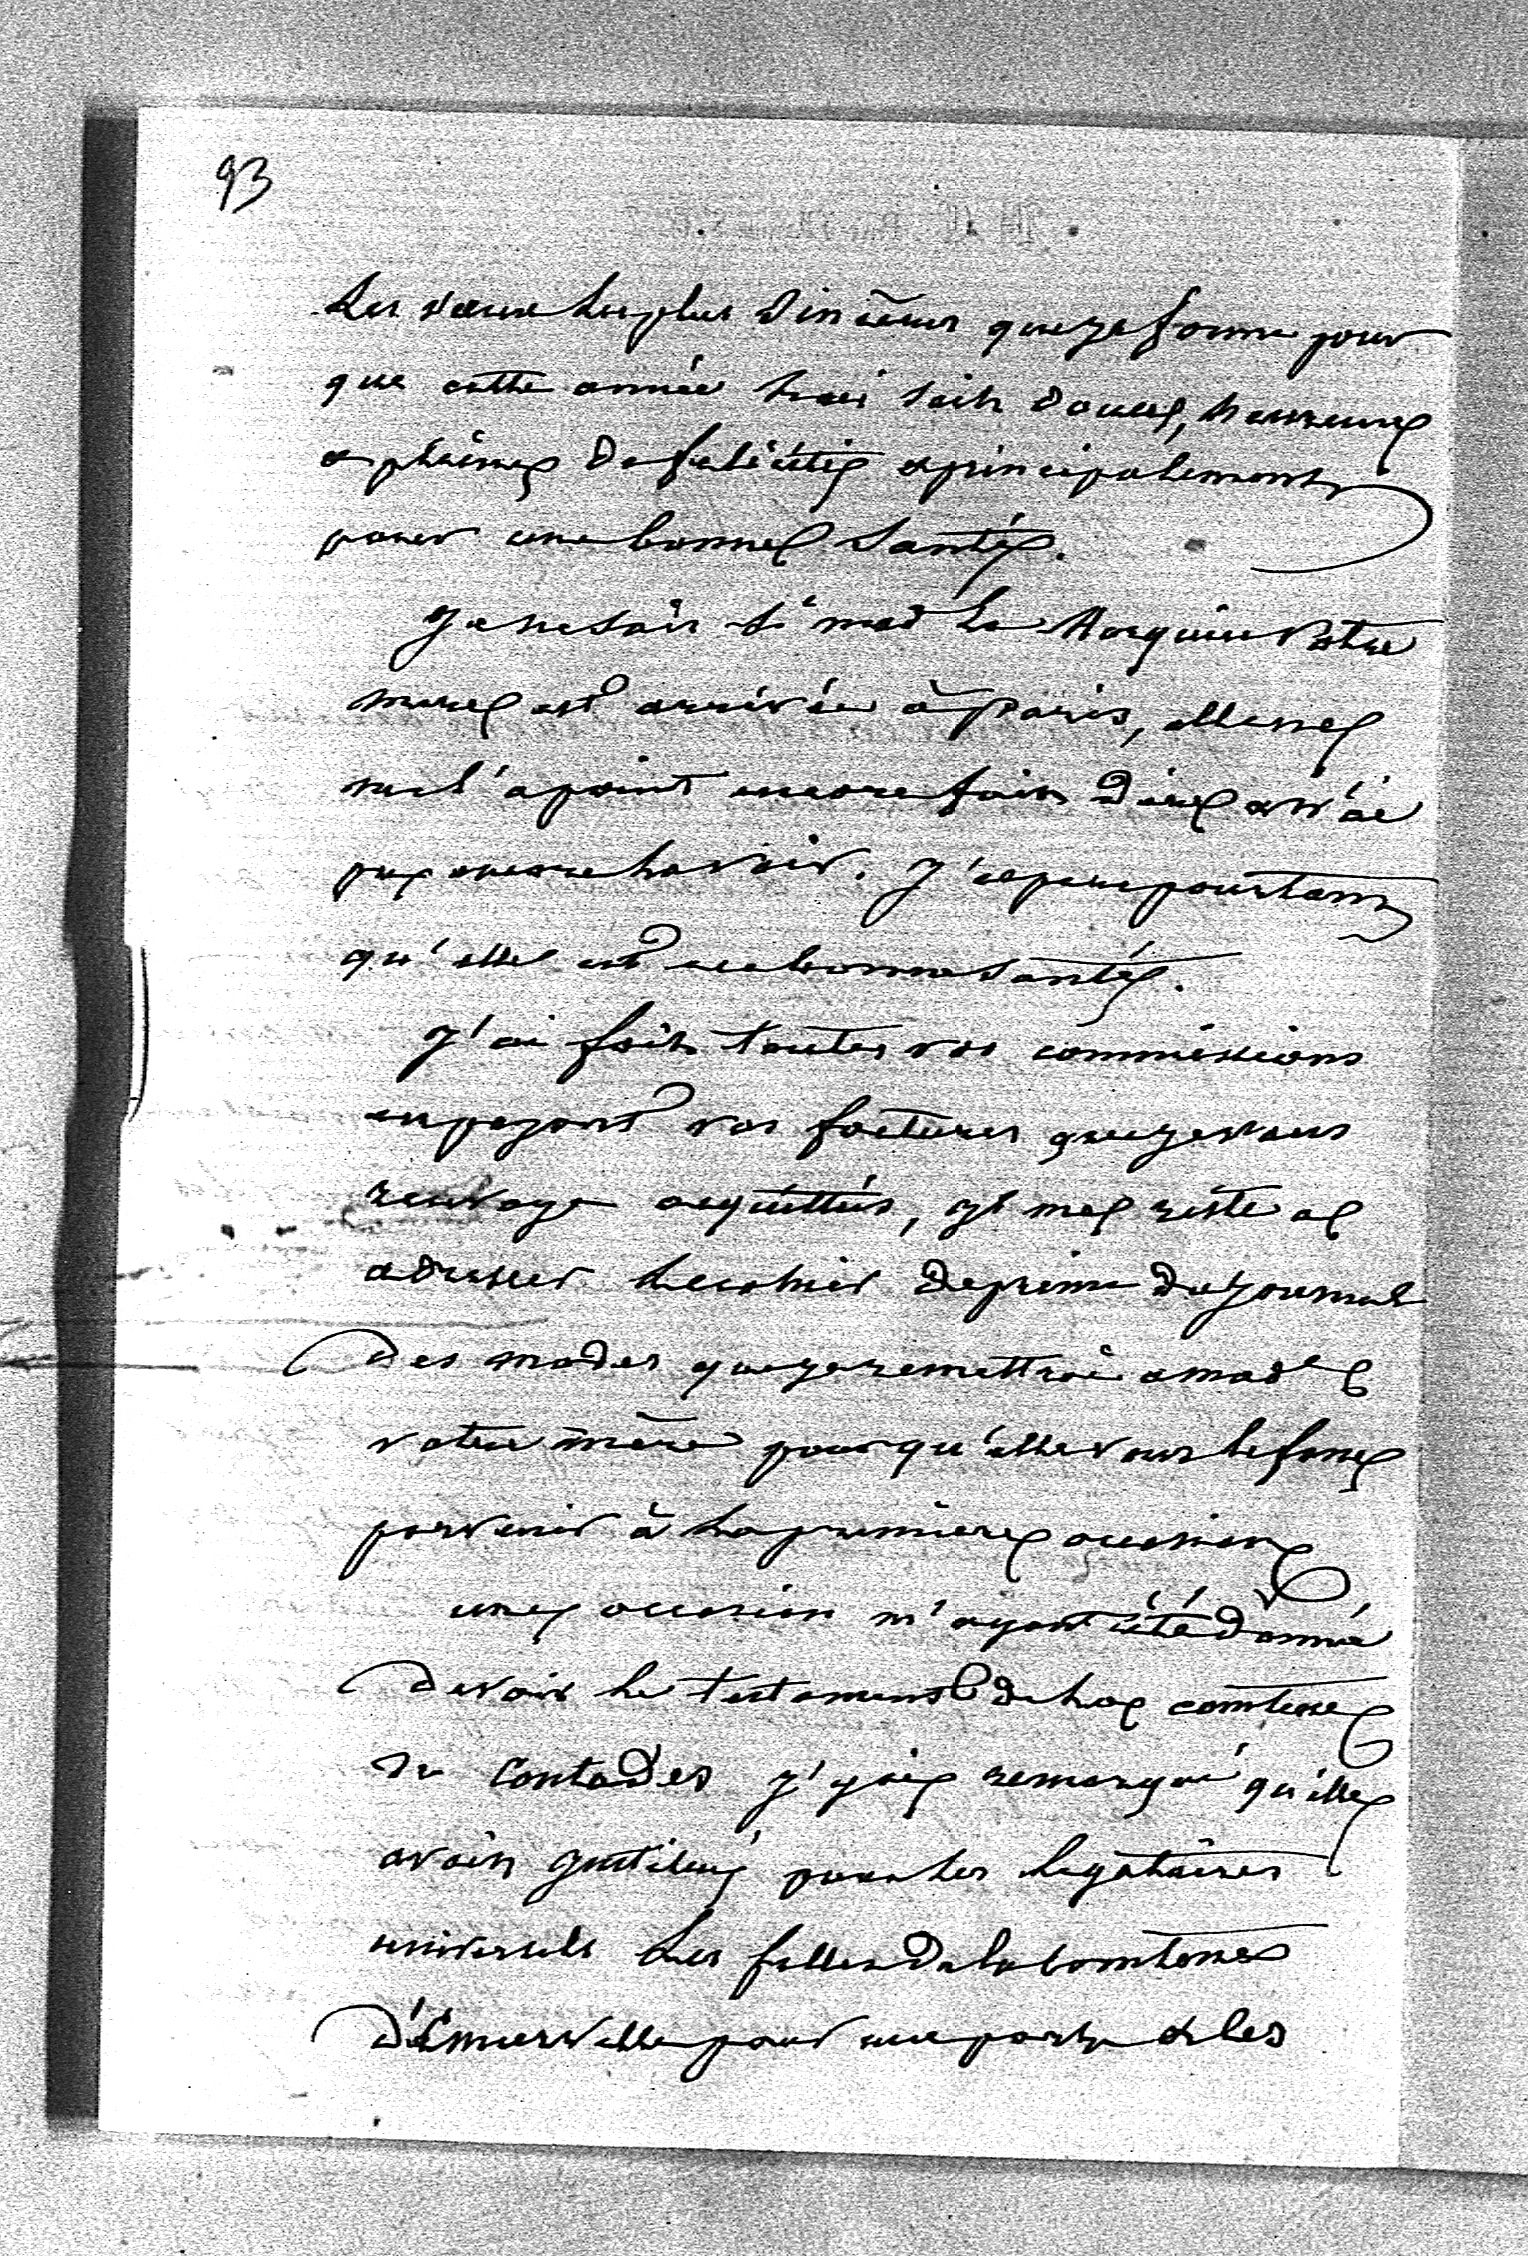 93
Les vœux les plus sincères que je forme pour
que cette année lui soit douce, heureuse
& pleine de félicité & principalement
pour une bonne santé.
Je ne sais si mad la Marquise votre
mere est arrivée à Paris, elle ne
me l'a point encore fait dire & n'ai
pu encore la voir. J'espere pourtant
qu'elle est en bonne santé.
J'ai fait toutes vos commissions
en payant vos factures que je vous
renvoye acquittées, il me reste a
adresser le cahier de prime du journal
des modes que je remettrai a made
votre mère pour qu'elle vous le fasse
parvenir à la premiere occasion
une occasion m'ayant été donné
de voir le testament de la comtesse
de Contades j'y ai remarqué qu'elle
avoit institué pour les légataires
universels les filles de la comtesse
d'Émerville pour une part & les